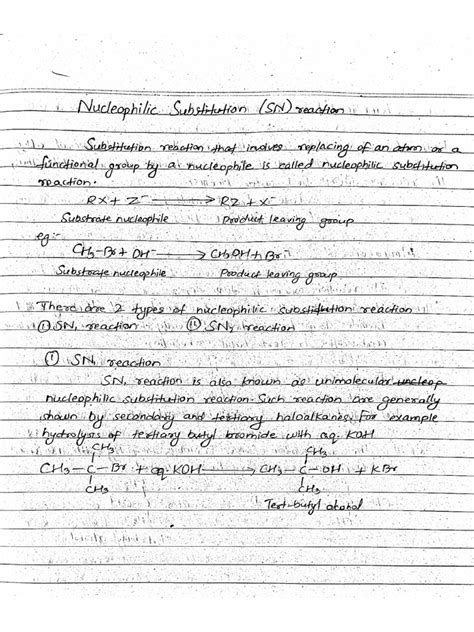 Nucleophilic Substitution (SN) reaction
Substitution reaction that involves replacing of an atom or a
functional group by a nucleophile is called nucleophilic substitution
reaction.
RX + Z⁻ → RZ + X⁻
Substrate nucleophile Product leaving group
eg:-
CH₃-Br + OH⁻ → CH₃OH + Br⁻
Substrate nucleophile Product leaving group
There are 2 types of nucleophilic substitution reaction
(i) SN₁ reaction (ii) SN₂ reaction
(i) SN₁ reaction
SN₁ reaction is also known as unimolecular
nucleophilic substitution reaction. Such reaction are generally
shown by secondary and tertiary haloalkanes. For example
hydrolysis of tertiary butyl bromide with aq. KOH
CH₃ CH₃
CH₃-C-Br + aq. KOH → CH₃-C-OH + KBr
CH₃ CH₃
Tert-butyl alcohol